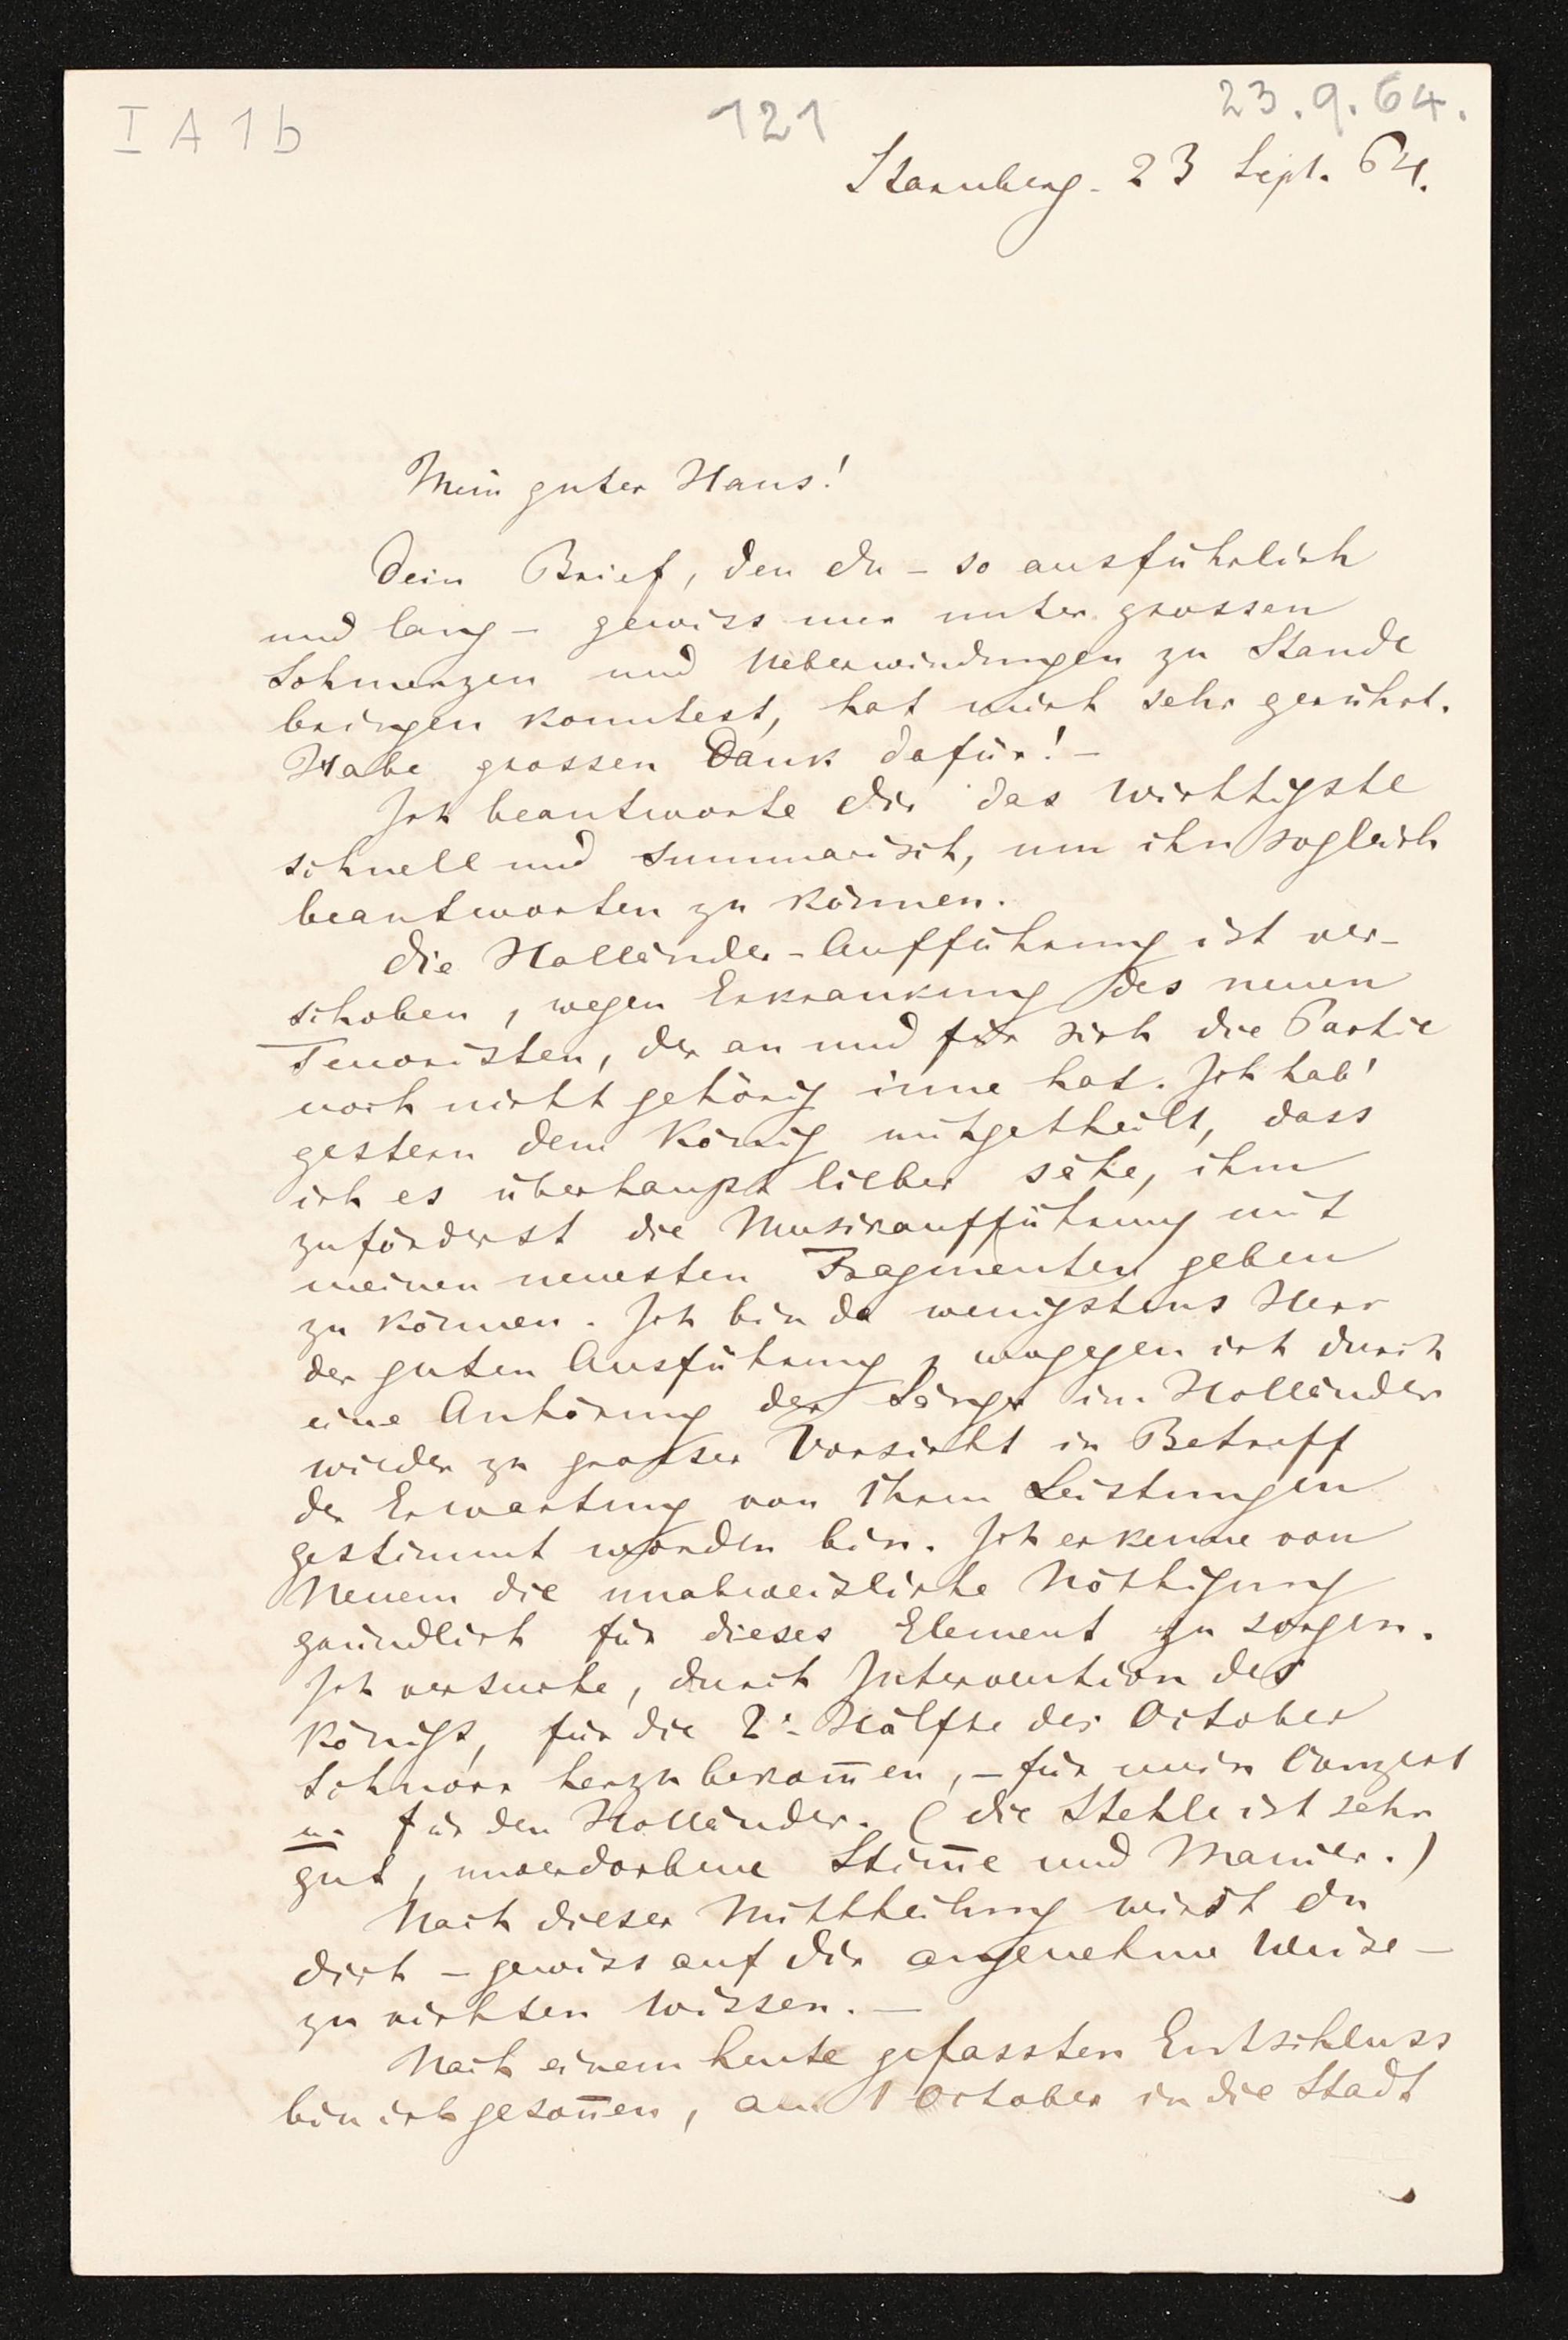 I A 1 b
121
23.9.64.
Starnberg. 23 Sept. 64.
Mein guter Hans!
Dein Brief, den du – so ausführlich
und lang – gewiss nur unter grossen
Schmerzen und Ueberwindungen zu Stande
bringen konntest, hat mich sehr gerührt.
Habe grossen Dank dafür! –
Ich beantworte dir das Wichtigste
schnell und summarisch, um ihn sogleich
beantworten zu können.
Die Holländer-Aufführung ist ver-
schoben, wegen Erkrankung des neuen
Tenoristen, der an und für sich die Partie
noch nicht gehörig inne hat. Ich hab'
gestern dem König mitgetheilt, dass
ich es überhaupt lieber sähe, ihm
zuförderst die Musikaufführung mit
meinen neuesten Fragmenten geben
zu können. Ich bin da wenigstens Herr
der guten Ausführung, wogegen ich durch
eine Anhörung der Sänger im Holländer
wieder zu grosser Vorsicht in Betreff
der Erwartung von ihren Leistungen
gestimmt worden bin. Ich erkenne von
Neuem die unabweisliche Nöthigung
gründlich für dieses Element zu sorgen.
Ich versuche, durch Intervention des
Königs, für die 2e Hälfte des October
Schnorr herzubekom̅en, – für mein Conzert
u. für den Holländer. (die Stehle ist sehr
gut, unverdorbene Stim̅e und Manier.)
Nach dieser Mittheilung wirst du
dich – gewiss auf dir angenehme Weise –
zu richten wissen. –
Nach einem heute gefassten Entschluss
bin ich geson̅en, am 1 October in die Stadt